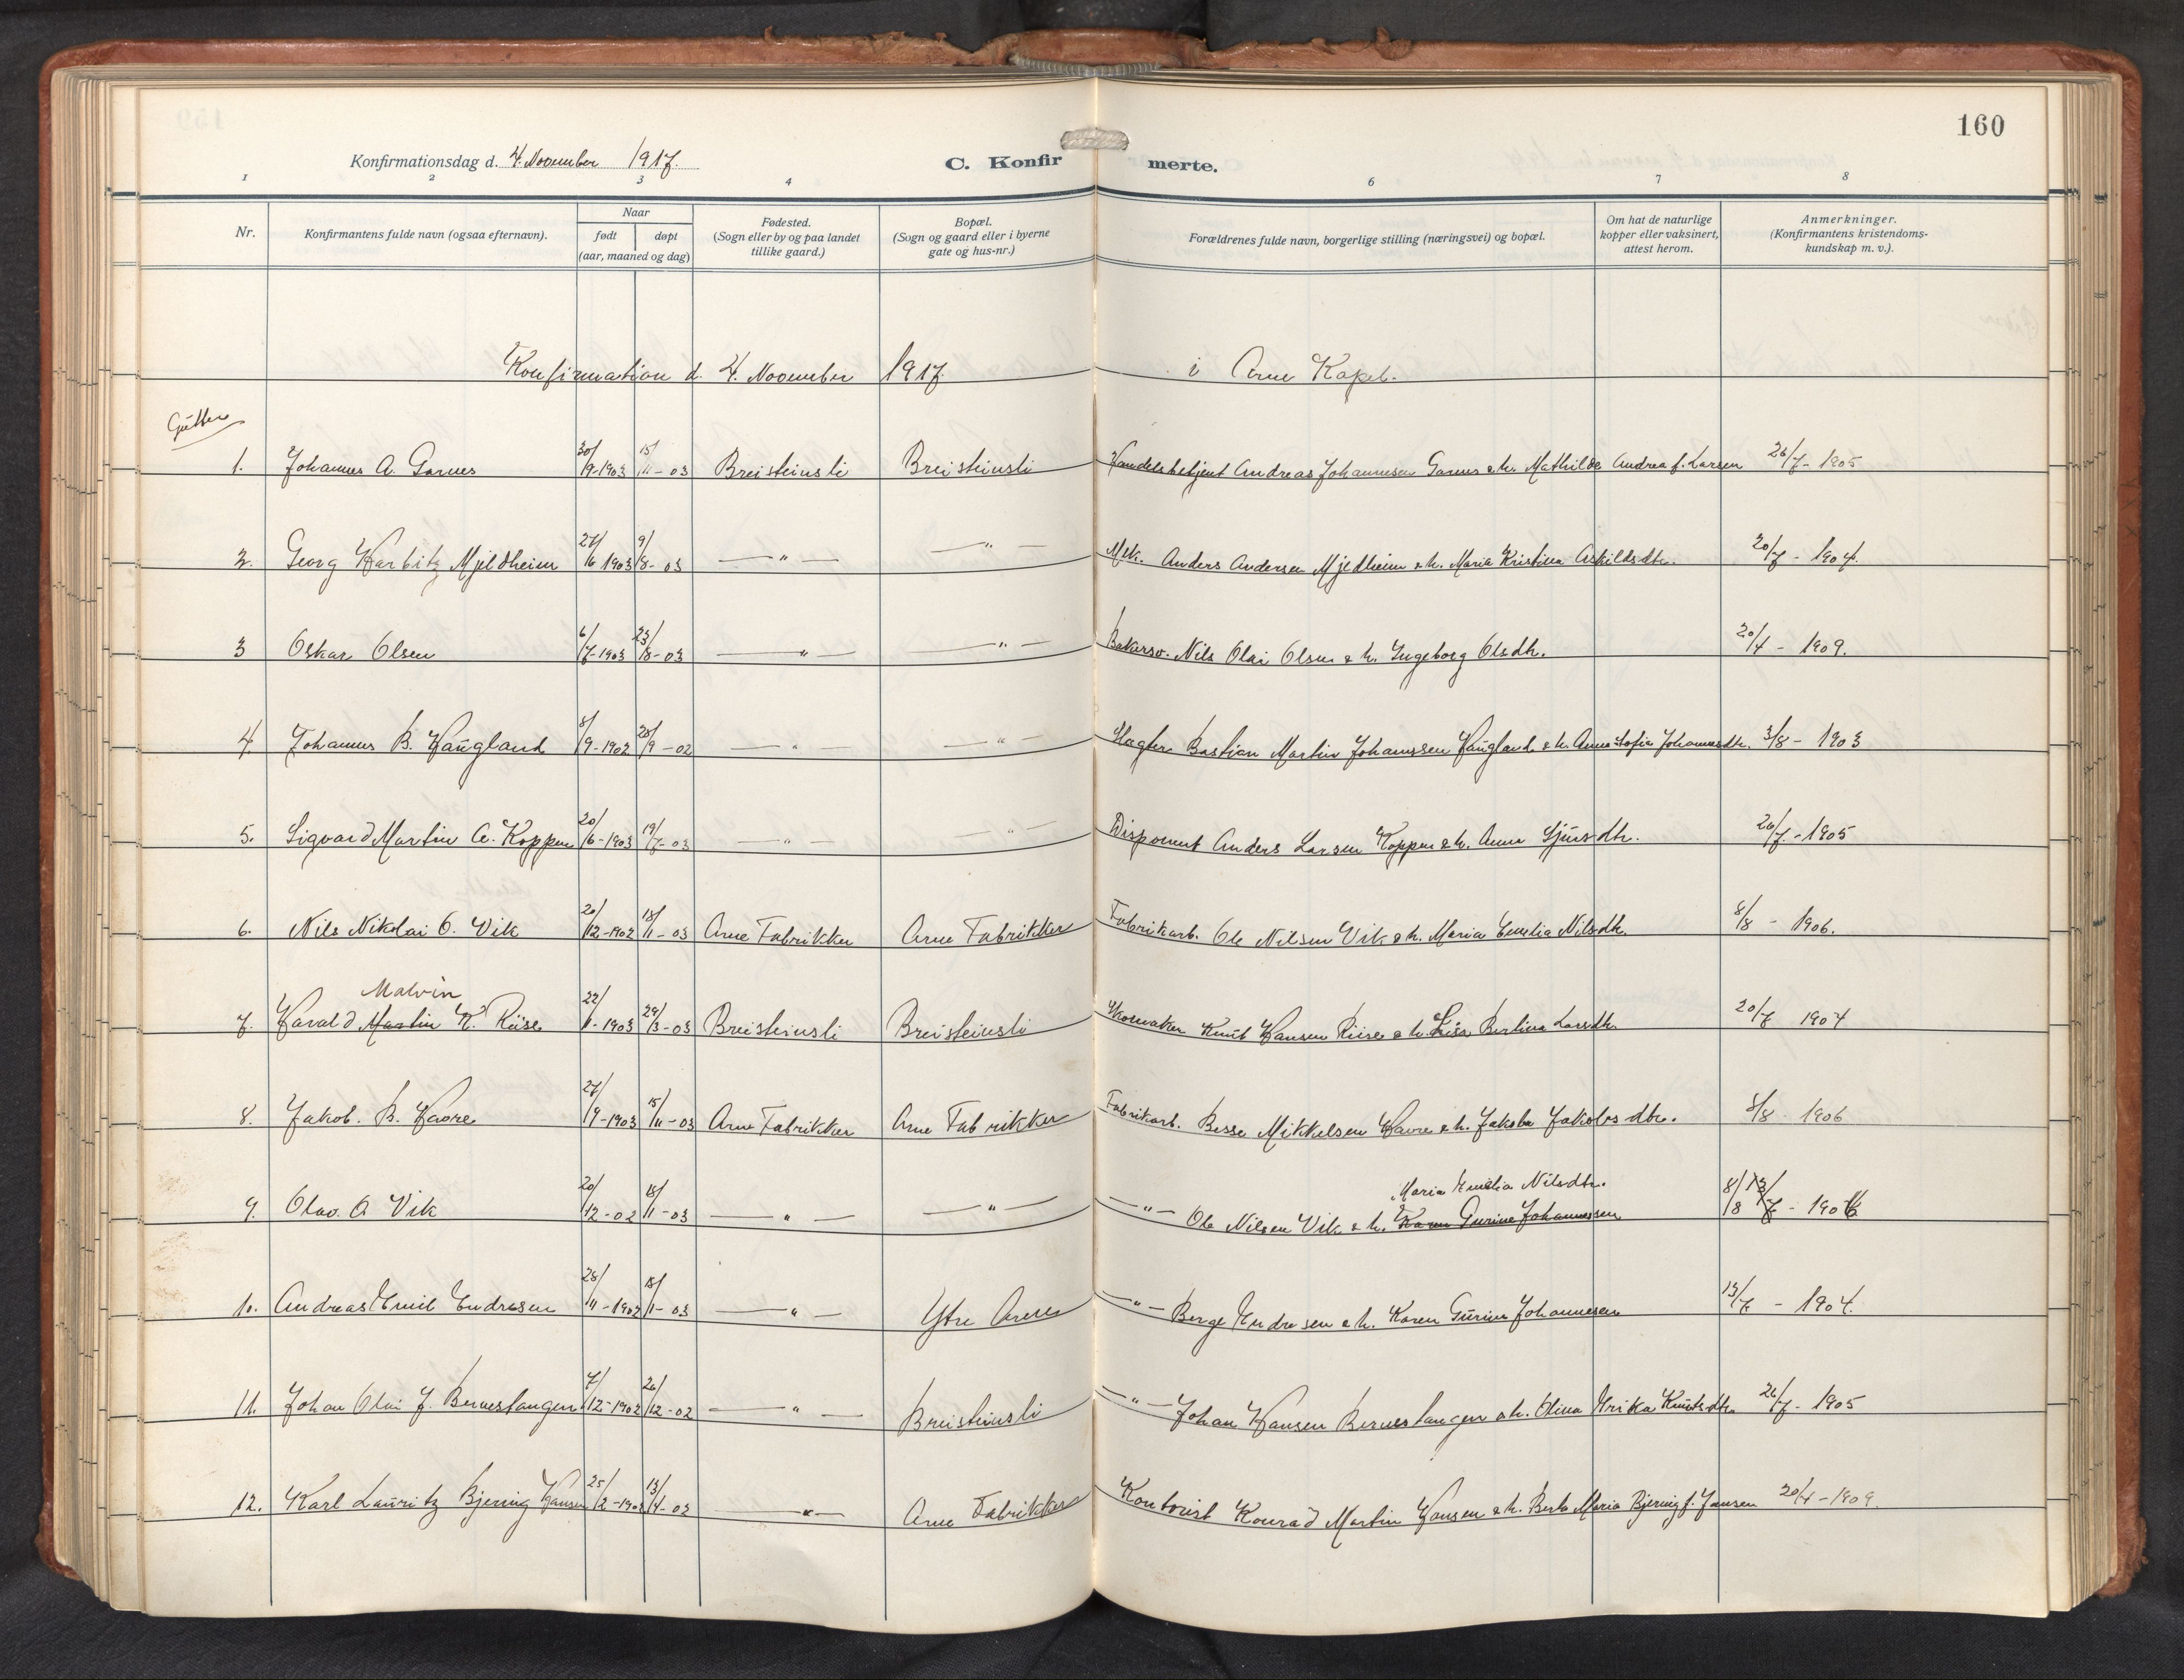 160
Konfirmationsdag d. 4. November 1917.
C. Konfirmerte.
1 2 3 4 6 7 8
Nr.
Konfirmantens fulde navn (ogsaa efternavn).
Naar
født døpt
(aar, maaned og dag)
Fødested.
(Sogn eller by og paa landet
tillike gaard.)
Bopæl.
(Sogn og gaard eller i byerne
gate og hus-nr.)
Forældrenes fulde navn, borgerlige stilling (næringsvei) og bopæl.
Om hat de naturlige
kopper eller vaksinert,
attest herom.
Anmerkninger.
(Konfirmantens kristendoms-
kundskap m. v.).
Konfirmation d. 4. November 1917 i Arne Kapel.
Gutter
1. Johannes A. Garnes 30/9-1903 15/11-03 Breisteinsli Breisteinsli Handelsbetjent Andreas Johannesen Garnes & h. Mathilde Andrea f. Larsen 26/7-1905
2. Georg Harbitz Mjeldheim 27/6 1903 9/8-03 —"— —"— Mek. Anders Andersen Mjeldheim & h. Maria Kristina Askildsdtr. 20/7-1904.
3 Oskar Olsen 6/7-1903 23/8-03 —"— —"— Bakersv. Nils Olai Olsen & h. Ingeborg Olsdtr. 20/4-1909.
4. Johannes B. Haugland 8/9-1902 28/9-02 —"— —"— Slagter Bastian Martin Johanssen Haugland & h. Anna Sofia Johannesdtr. 3/8-1903
5. Sigvard Martin A. Koppen 20/6-1903 19/7-03 —"— —"— Disponent Anders Larsen Koppen & h. Anna Sjursdtr. 26/7-1905
6. Nils Nikolai O. Vik 20/12-1902 18/1-03 Arne Fabrikker Arne Fabrikker Fabrikarb. Ole Nilsen Vik & h. Maria Emelia Nilsdtr. 8/8-1906.
Malvin
7. Harald Martin K. Riise 22/1-1903 29/3-03 Breisteinsli Breisteinsli Skomaker Knut Hansen Riise & h. Lisa Berlina Larsdtr. 20/7 1904
8. Jakob. B. Havre 27/9-1903 15/11-03 Arne Fabrikker Arne Fabrikker Fabrikarb. Besse Mikkelsen Havre & h. Jakoba Jakobsdtr. 8/8 1906
Maria Emelia Nilsdtr.
9. Olav. O Vik 20/12-02 18/1-03 —"— —"— —"— Ole Nilsen Vik & h. Karen Gurine Johannessen 8/8 13/7-1906
10. Andreas Emil Endresen 28/11-1902 18/1-03 —"— Ytre Arne —"— Berge Endresen & h. Karen Gurine Johannesen 13/7-1904.
11. Johan Olai J. Berneslangen 7/12-1902 26/12-02 —"— Breisteinsli —"— Johan Hansen Berneslangen & h. Olina Erika Knutsdtr. 26/7-1905
12. Karl Lauritz Bjering Hansen 25/2-1903 13/4-03 —"— Arne Fabrikker Kontorist Konrad Martin Hansen & h. Berta Maria Bjering f. Jansen 20/4-1909.